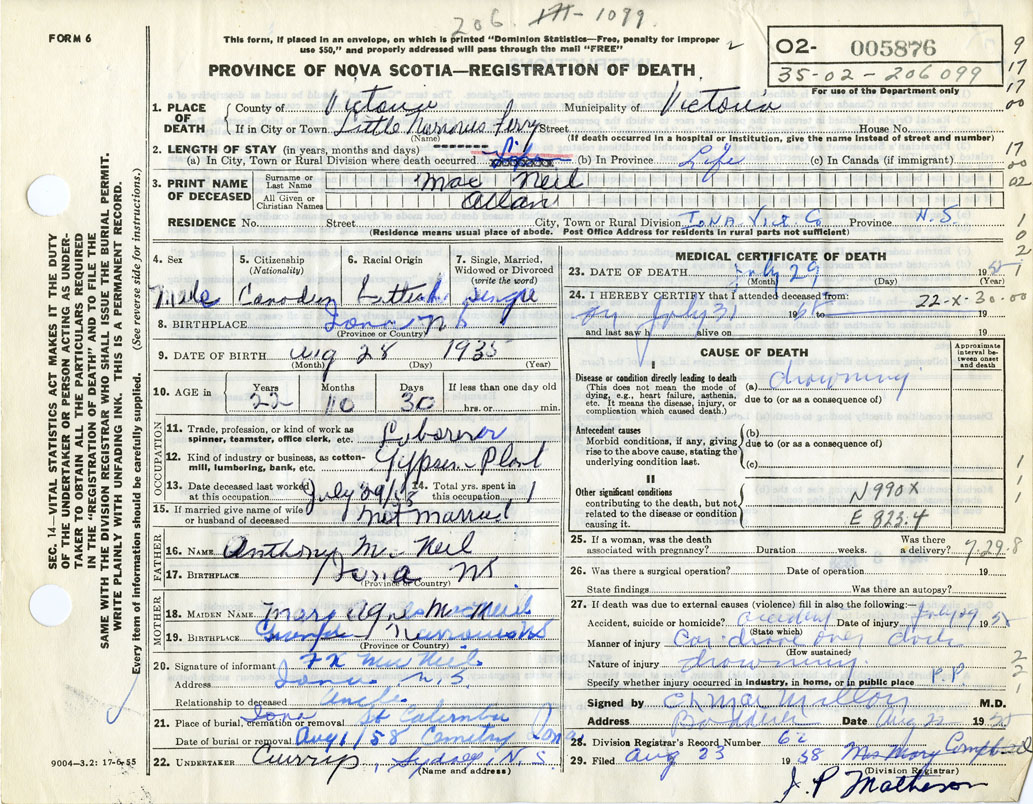 206 III-1099
FORM 6
This form, if placed in an envelope, on which is printed "Dominion Statistics—Free, penalty for improper
use $50," and properly addressed will pass through the mail "FREE"
O2- 005876
35-02-206099
For use of the Department only
PROVINCE OF NOVA SCOTIA—REGISTRATION OF DEATH
9
17
17
00
17
00
02
1
0
2
1
1. PLACE OF DEATH
County of Victoria Municipality of Victoria
If in City or Town Little Narrows Ferry Street House No.
(Name) (If death occurred in a hospital or institution, give the name instead of street and number)
2. LENGTH OF STAY (in years, months and days)
(a) In City, Town or Rural Division where death occurred Life (b) In Province Life (c) In Canada (if immigrant)
3. PRINT NAME OF DECEASED
Surname or Last Name Mac Neil
All Given or Christian Names Allan
RESIDENCE No. Street City, Town or Rural Division IONA Vict Co Province N.S
(Residence means usual place of abode. Post Office Address for residents in rural parts not sufficient)
4. Sex
Male
5. Citizenship
(Nationality)
Canadian
6. Racial Origin
7. Single, Married, Widowed or Divorced
(write the word)
Single
8. BIRTHPLACE Iona N S
(Province or Country)
9. DATE OF BIRTH Aug 28 1935
(Month) (Day) (Year)
10. AGE in
Years Months Days If less than one day old
22 10 30 hrs. or min.
OCCUPATION
11. Trade, profession, or kind of work as spinner, teamster, office clerk, etc. Laborer
12. Kind of industry or business, as cotton-mill, lumbering, bank, etc. Plant
13. Date deceased last worked at this occupation July 29/58
14. Total yrs. spent in this occupation 1
15. If married give name of wife or husband of deceased not married
FATHER
16. NAME Anthony Mc Neil
17. BIRTHPLACE N S
(Province or Country)
MOTHER
18. MAIDEN NAME Mary Agnes MacNeil
19. BIRTHPLACE Narrows NS
(Province or Country)
20. Signature of informant F X MacNeil
Address Iona N.S.
Relationship to deceased Uncle
21. Place of burial, cremation or removal Iona St Columba Iona
Date of burial or removal Aug 1/58 Cemetery
22. UNDERTAKER Curry, Sydney, N.S.
(Name and address)
9004—3.2: 17-6-55
MEDICAL CERTIFICATE OF DEATH
23. DATE OF DEATH July 29 19
(Month) (Day) (Year)
24. I HEREBY CERTIFY that I attended deceased from: 22-X-30-00
on July 31 19 to 19
and last saw h alive on 19
CAUSE OF DEATH
Approximate interval between onset and death
I
Disease or condition directly leading to death (a) drowning
(This does not mean the mode of dying, e.g., heart failure, asthenia, etc. It means the disease, injury, or complication which caused death.)
due to (or as a consequence of)
Antecedent causes
Morbid conditions, if any, giving rise to the above cause, stating the underlying condition last.
(b)
due to (or as a consequence of)
(c)
II
Other significant conditions contributing to the death, but not related to the disease or condition causing it.
N990X
E 823.4
25. If a woman, was the death associated with pregnancy? Duration weeks. Was there a delivery? 7.29.8
26. Was there a surgical operation? Date of operation 19
State findings Was there an autopsy?
27. If death was due to external causes (violence) fill in also the following:—
Accident, suicide or homicide? accident Date of injury July 29 1958
(State which)
Manner of injury Car drove over dock
(How sustained)
Nature of injury drowning
Specify whether injury occurred in industry, in home, or in public place P.P.
Signed by M.D.
Address Baddeck Date Aug 22 1958
28. Division Registrar's Record Number 62
29. Filed Aug 23 1958 Mrs Mary Campbell
(Division Registrar)
J. P. Matheson
1
1
1
2
2
SEC. 14—VITAL STATISTICS ACT MAKES IT THE DUTY
OF THE UNDERTAKER OR PERSON ACTING AS UNDER-
TAKER TO OBTAIN ALL THE PARTICULARS REQUIRED
IN THE "REGISTRATION OF DEATH" AND TO FILE THE
SAME WITH THE DIVISION REGISTRAR WHO SHALL ISSUE THE BURIAL PERMIT.
WRITE PLAINLY WITH UNFADING INK. THIS IS A PERMANENT RECORD.
Every item of information should be carefully supplied. (See reverse side for instructions.)